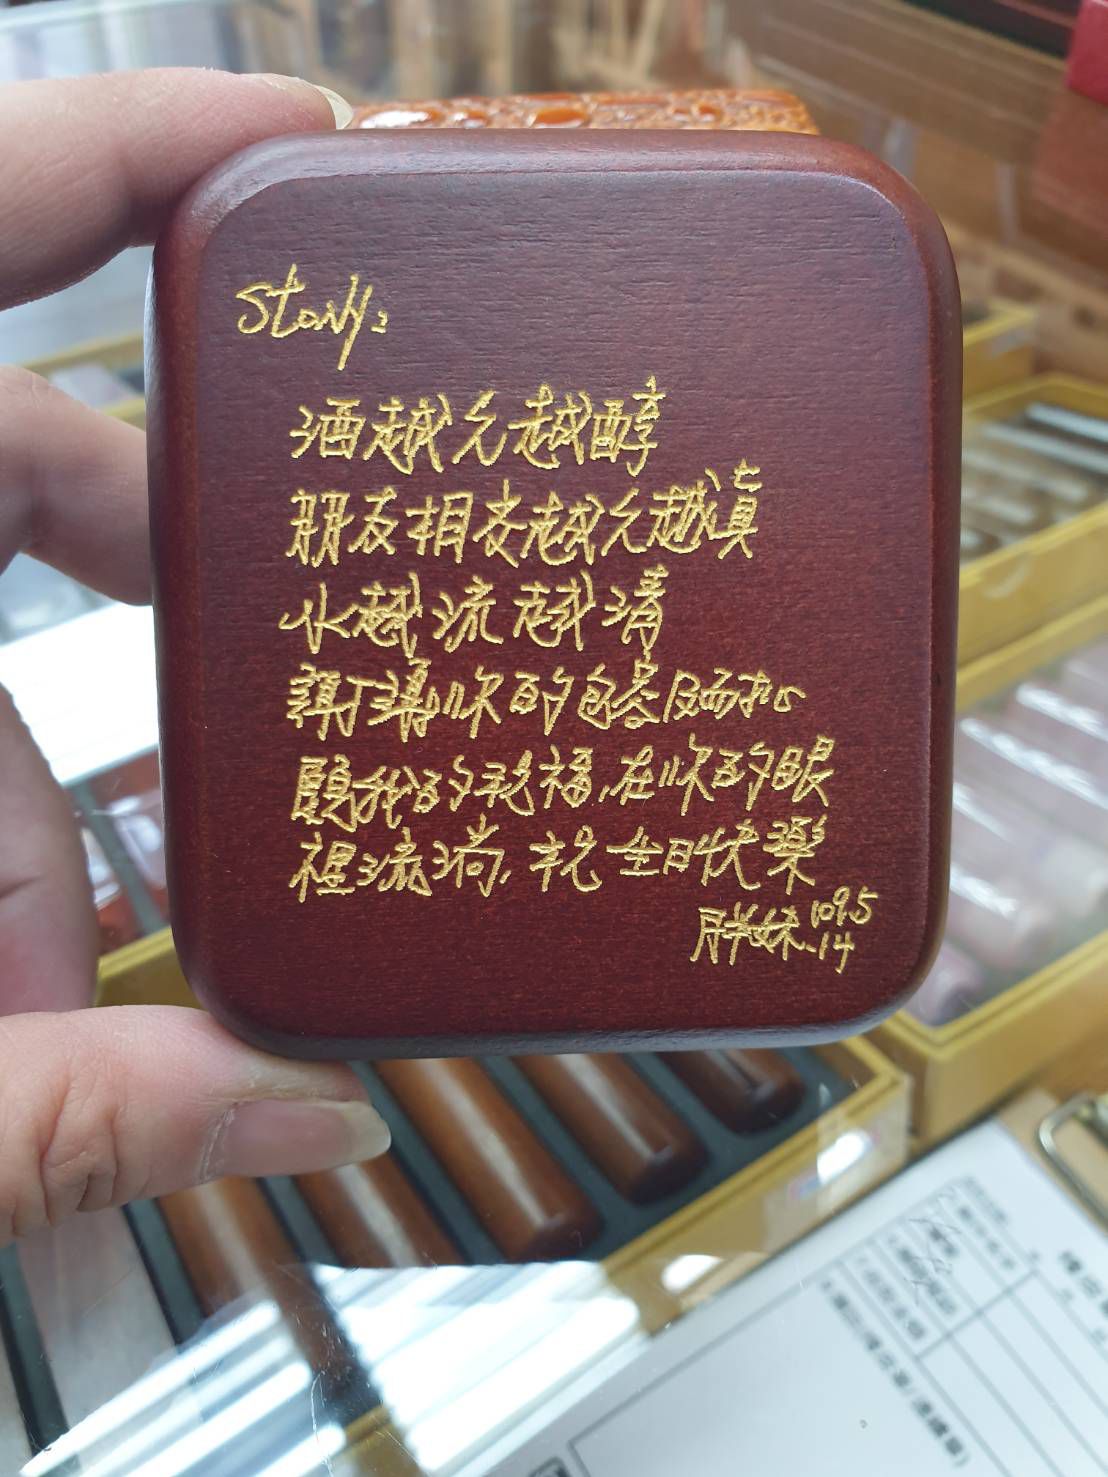 Stony:
酒越久越醇
朋友相交越久越真
水越流越清
謝謝你的包容及照
願我的祝福,在你的眼
裡流淌,祝生日快樂
胖妹 109.5
.14